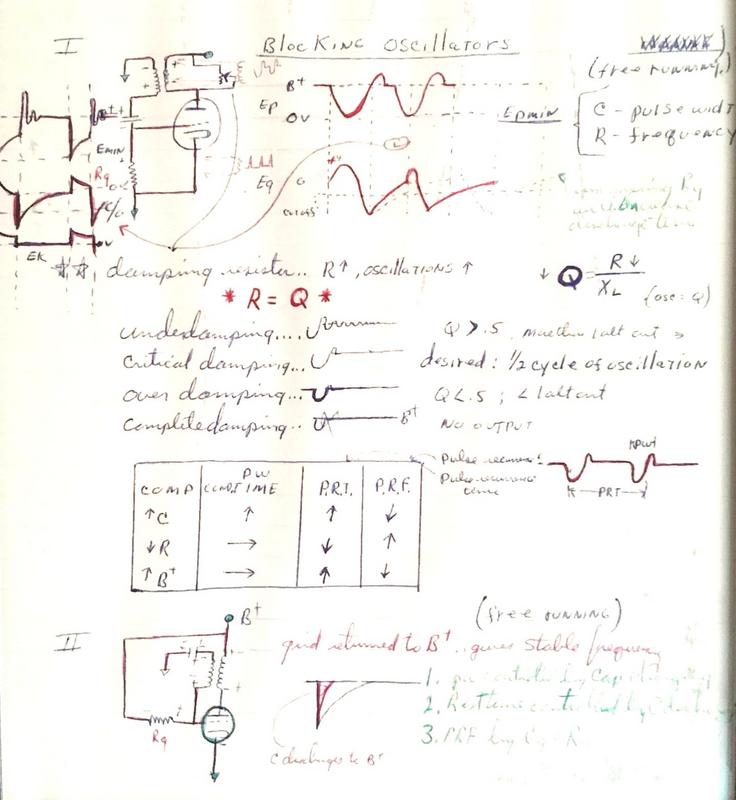 I
Blocking Oscillators
(free running)
B+
Ep
OV
Epmin
C - pulse widt
R - frequency
Emin
Rg
Eg
O
cutoff
c/o
EK
** damping resister.. R↑, oscillations ↑
↓ Q = R↓ / XL (osc = Q)
* R = Q *
underdamping....
Q > .5
critical damping...
desired: 1/2 cycle of oscillation
over damping...
Q < .5 ; < 1 alt out
complete damping.. B+
NO OUTPUT
Pulse recurrent
Pulse recurrence
time
PRT
COMP COND. TIME PW P.R.T. P.R.F.
↑C ↑ ↑ ↓
↓R → ↓ ↑
↑B+ → ↑ ↓
II
B+
(free running)
grid returned to B+.. gives stable frequency
1. pw controlled by Cap
2. Rest time controlled by C
3. PRF by
Rg
C discharges to B+